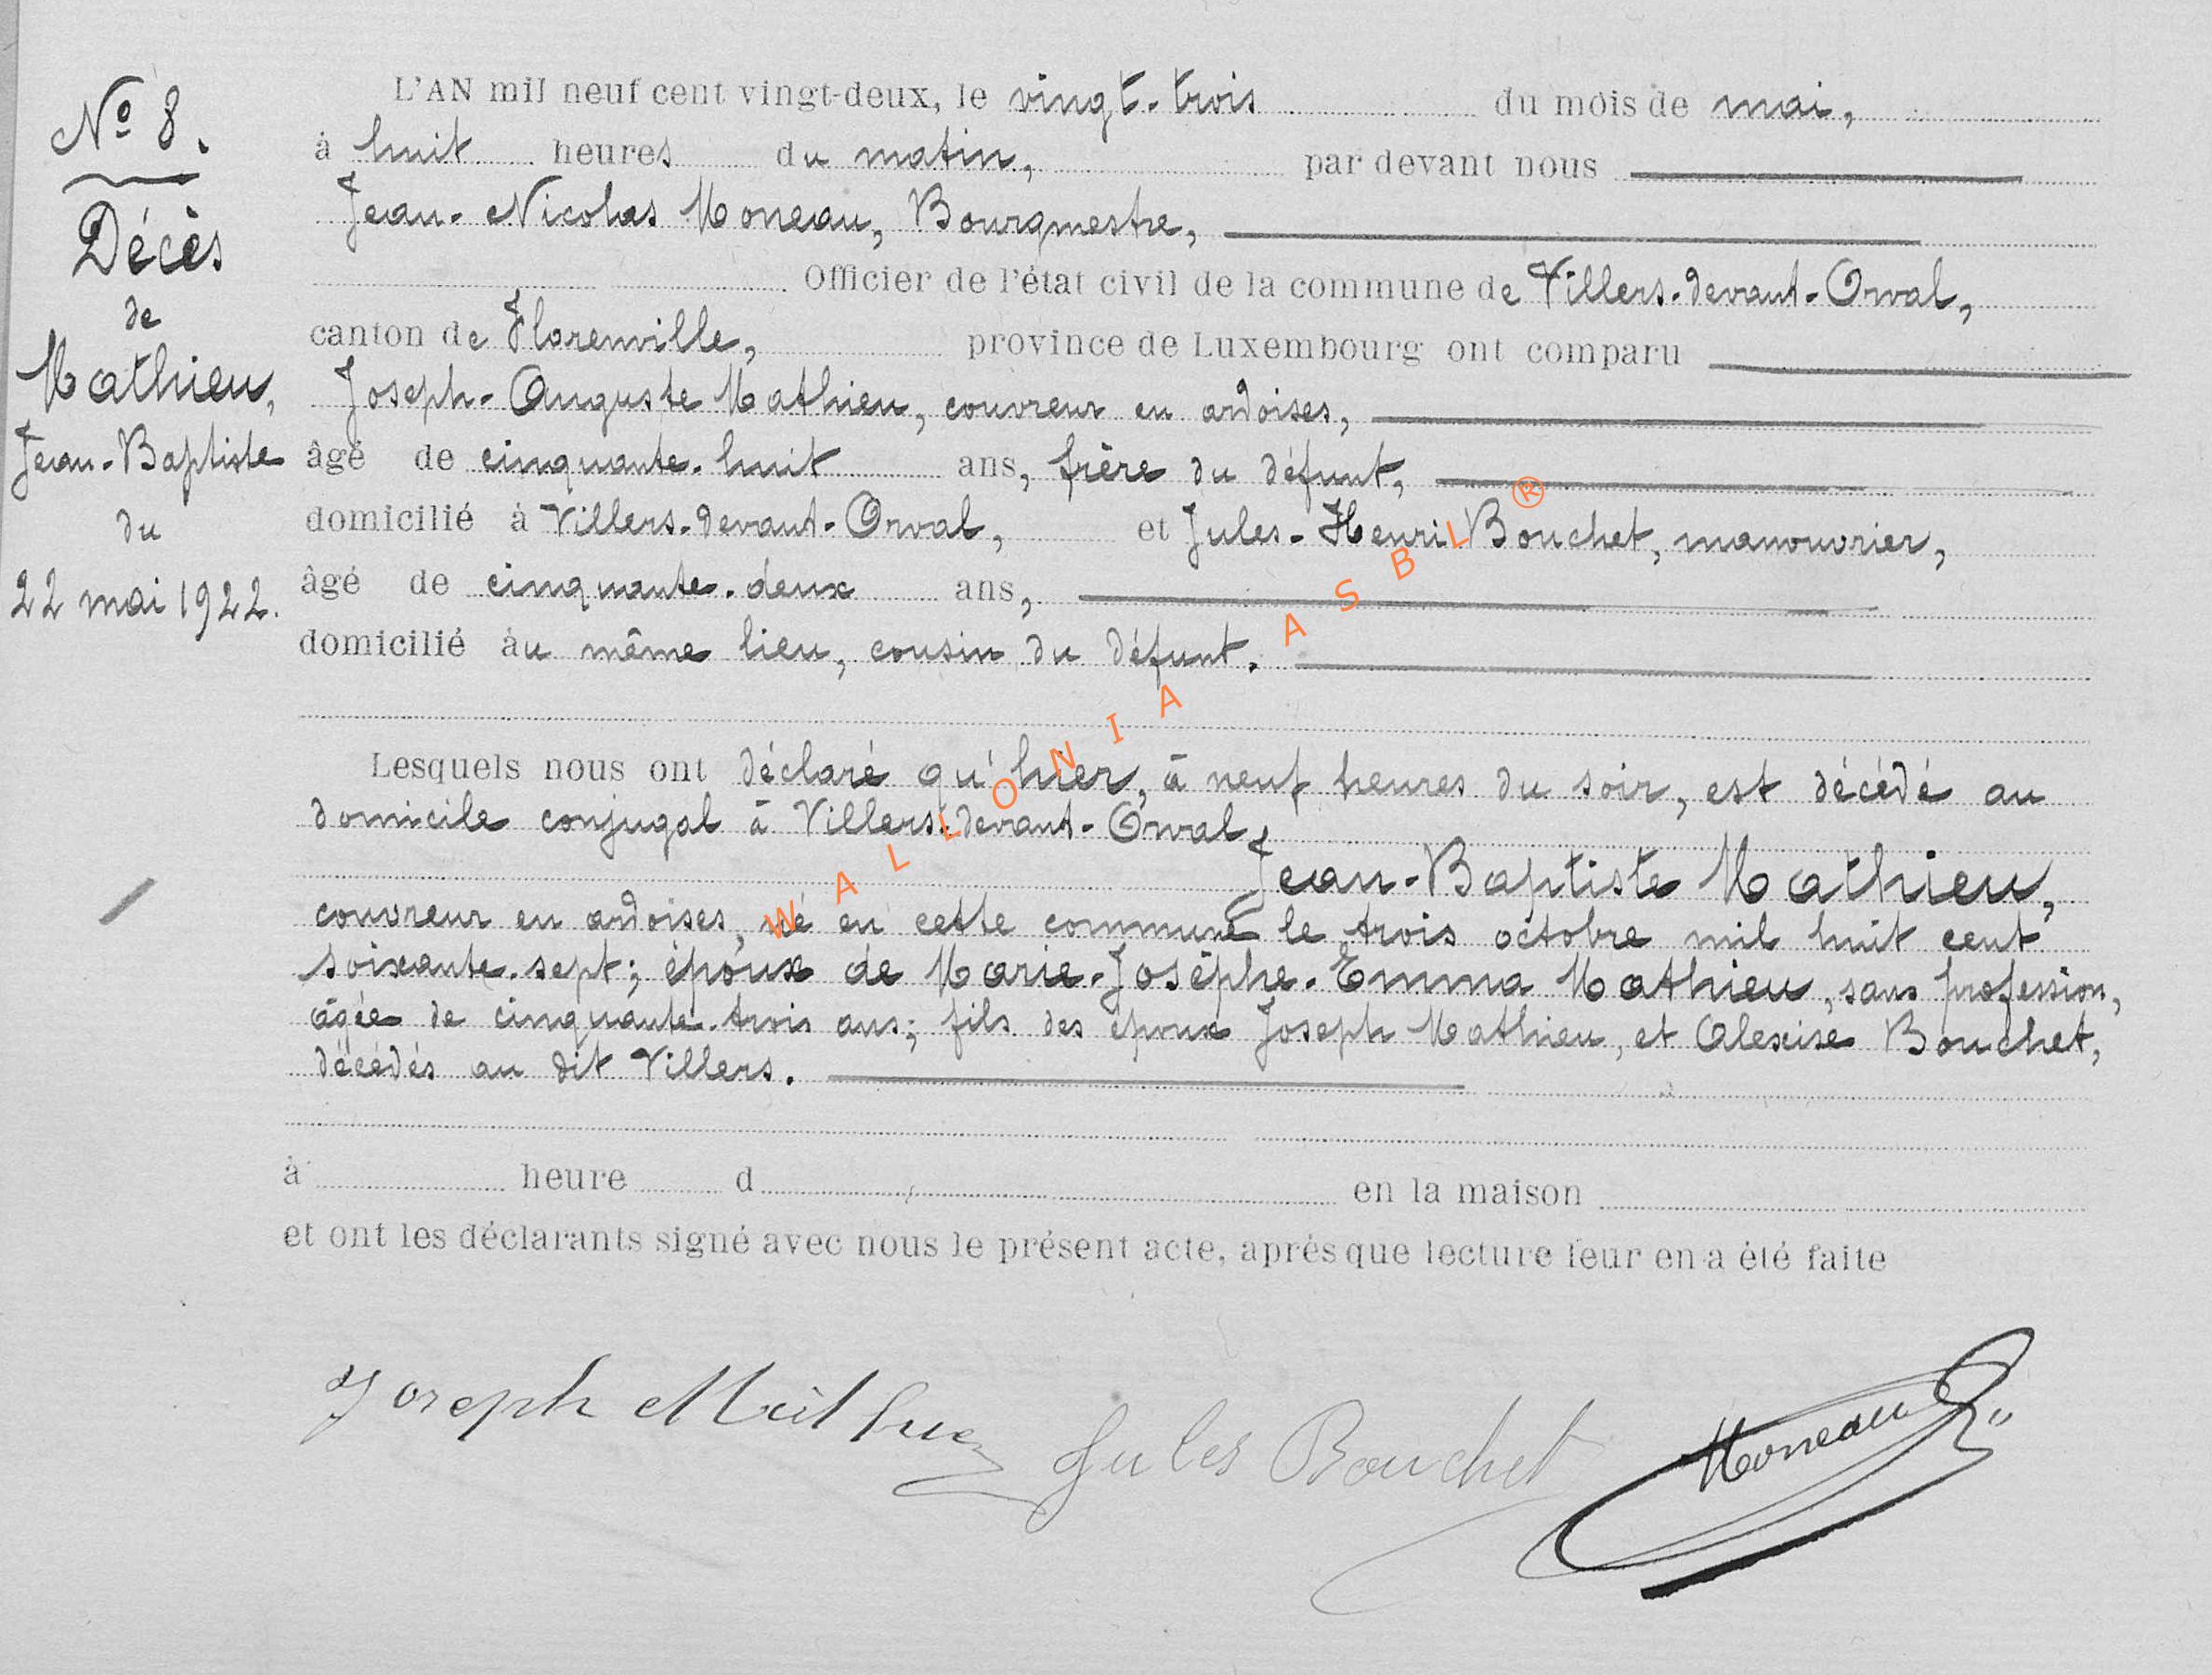 N° 8.
Décès
de
Mathieu,
Jean-Baptiste
du
22 mai 1922.
L'AN mil neuf cent vingt-deux, le vingt-trois du mois de mai,
à huit heures du matin, par devant nous
Jean-Nicolas Moneau, Bourgmestre,
Officier de l'état civil de la commune de Villers-devant-Orval,
canton de Florenville, province de Luxembourg ont comparu
Joseph-Auguste Mathieu, couvreur en ardoises,
âgé de cinquante-huit ans, frère du défunt,
domicilié à Villers-devant-Orval, et Jules-Henri Bouchet, manouvrier,
âgé de cinquante-deux ans,
domicilié au même lieu, cousin du défunt.
Lesquels nous ont déclaré qu'hier, à neuf heures du soir, est décédé au
domicile conjugal à Villers-devant-Orval,
Jean-Baptiste Mathieu,
couvreur en ardoises, né en cette commune le trois octobre mil huit cent
soixante-sept; époux de Marie-Josèphe-Emma Mathieu, sans profession,
âgée de cinquante-trois ans; fils des époux Joseph Mathieu, et Alexise Bouchet,
décédés au dit Villers.
à heure d en la maison
et ont les déclarants signé avec nous le présent acte, après que lecture leur en a été faite
Joseph Mathieu Jules Bouchet Moneau
WALLONIA ASBL ®